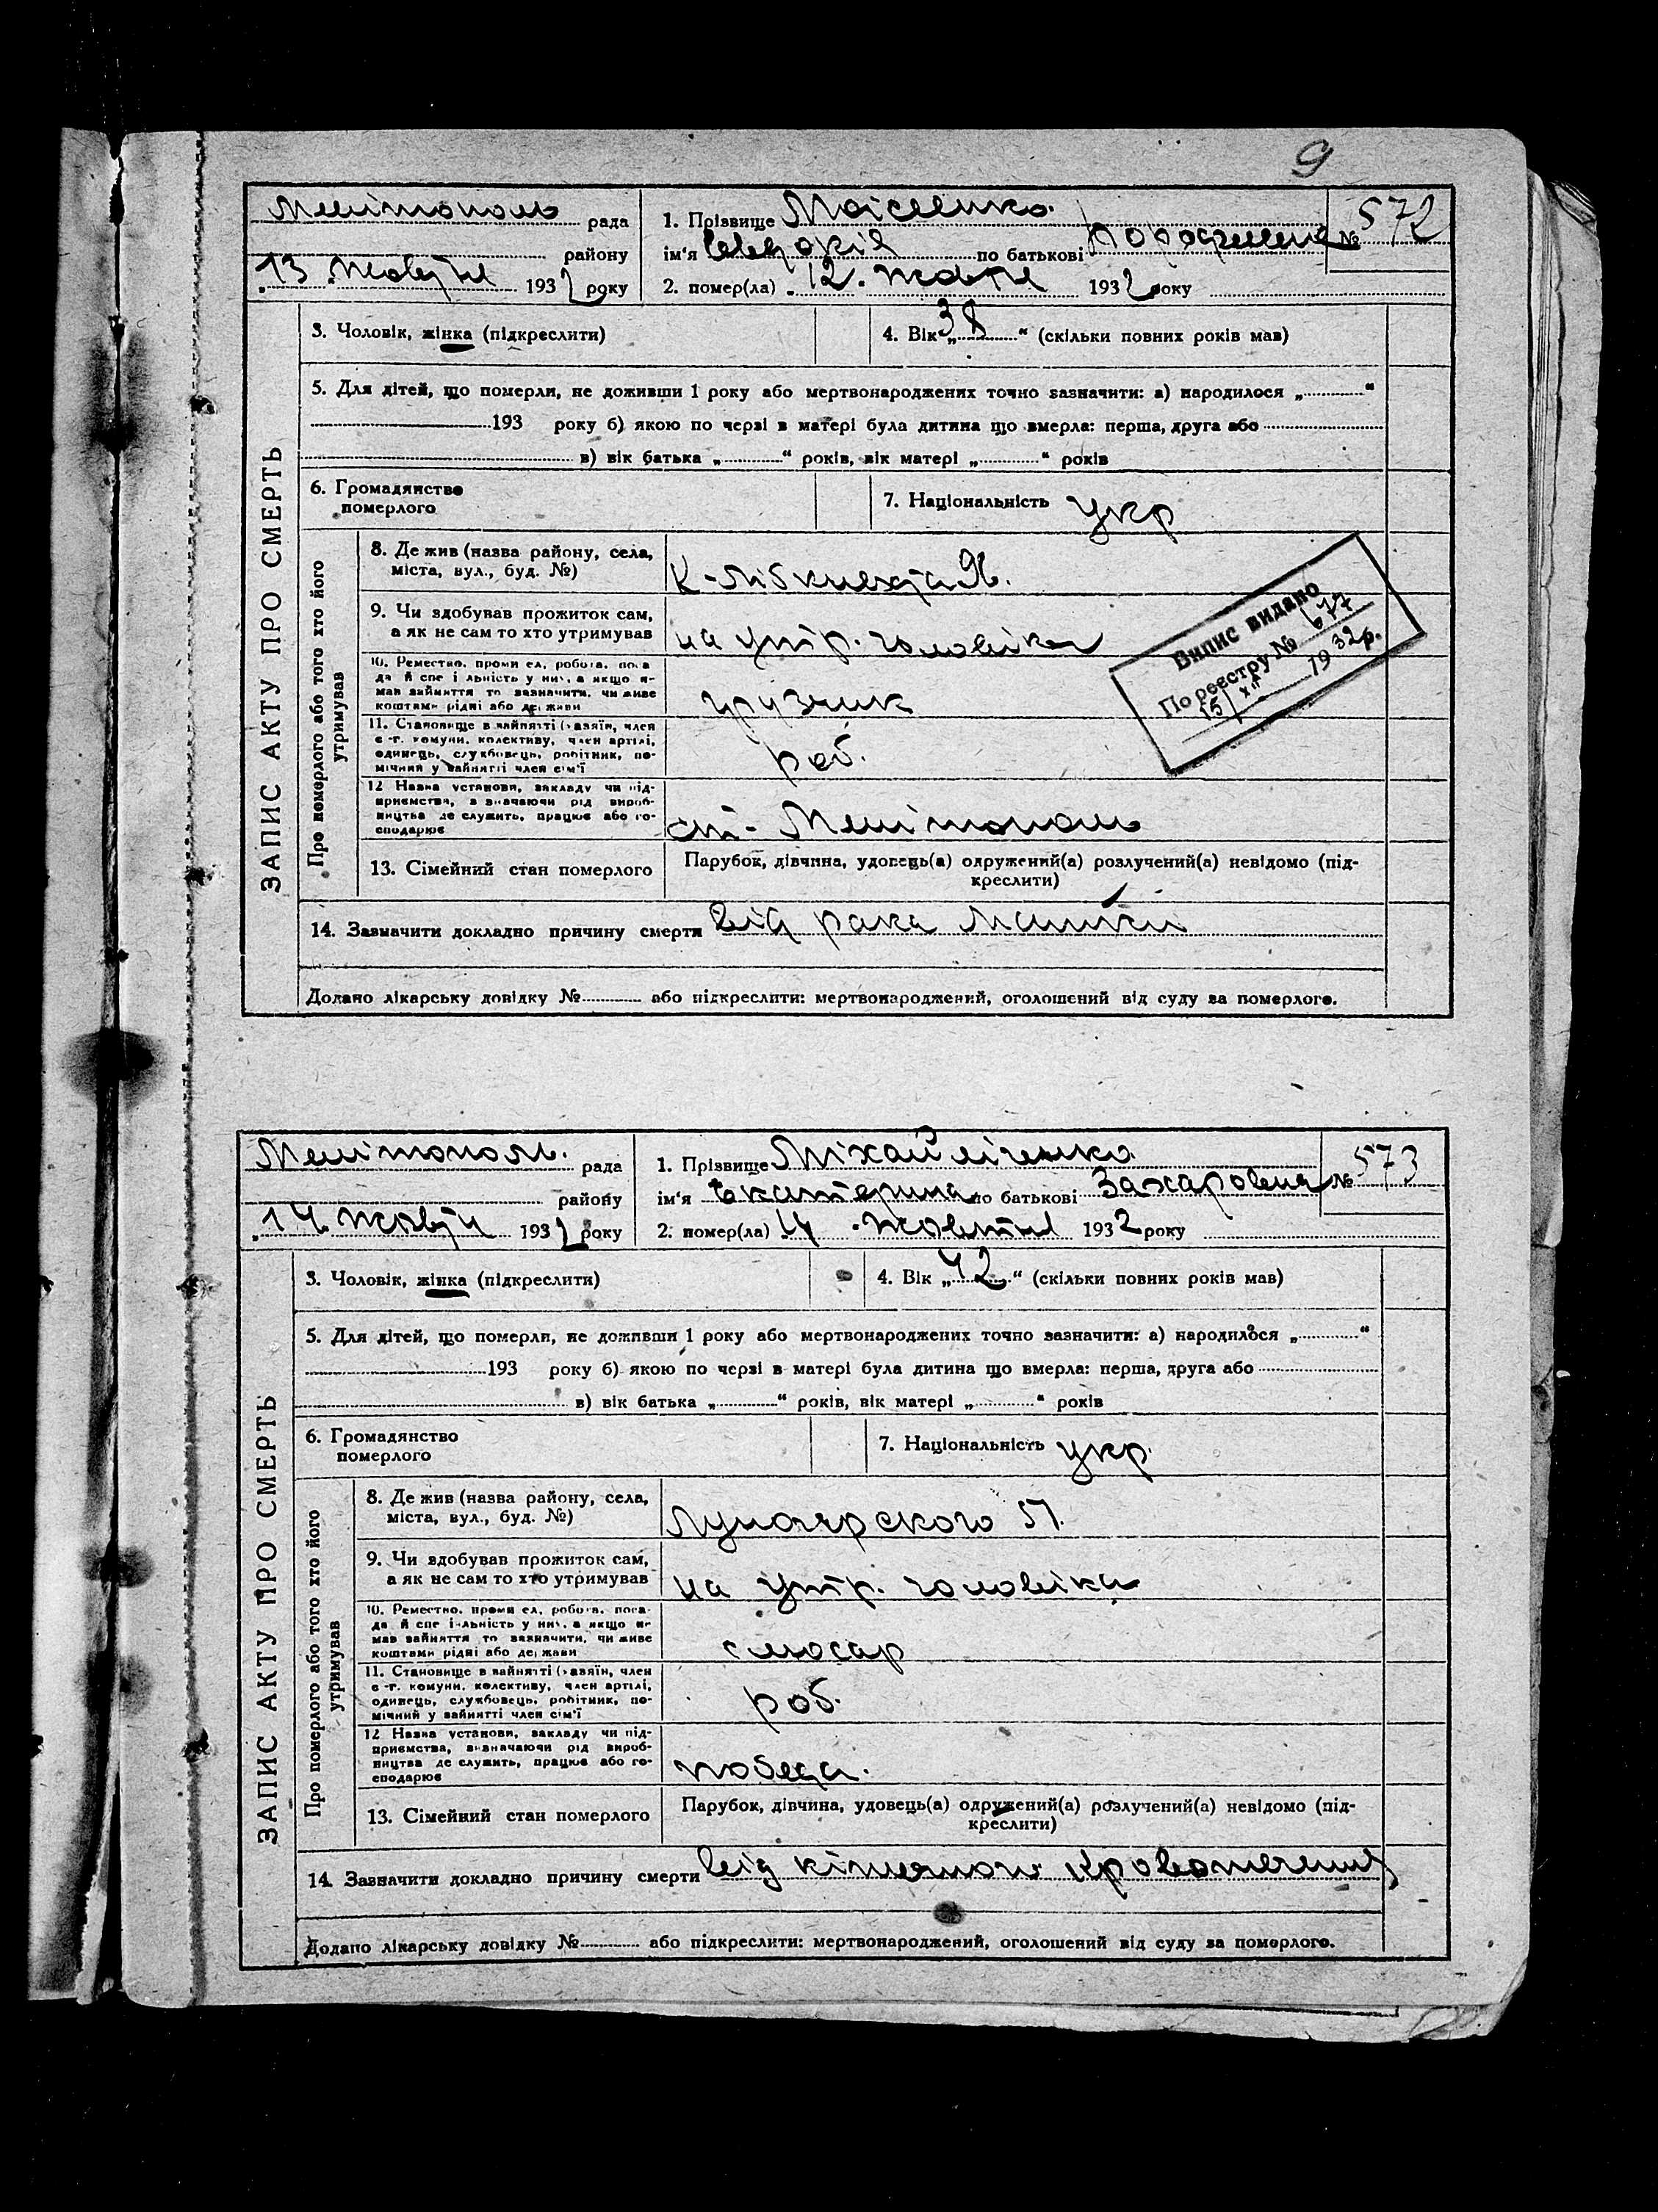 9
Мелітополь рада
району
"13 Жовтн 1932 року
1. Прізвище Моісеенко
№ 572
ім'я Евдокія по батькові
2. помер(ла) "12. Жовтн 1932 року
ЗАПИС АКТУ ПРО СМЕРТЬ
3. Чоловік, жінка (підкреслити)
4. Вік „38“ (скільки повних років мав)
5. Для дітей, що померли, не доживши 1 року або мертвонароджених точно зазначити: а) народилося „ “
193 року б) якою по черзі в матері була дитина що вмерла: перша, друга або
в) вік батька „ “ років, вік матері „ “ років
6. Громадянство
померлого
7. Національність укр
Про померлого або того хто його
утримував
8. Де жив (назва району, села,
міста, вул., буд. №)
К-Лібкнехта 96.
9. Чи здобував прожиток сам,
а як не сам то хто утримував
на утр. чоловіка
10. Ремество, промисел, робота, поса
да й спеціальність у них, а якщо не
мав зайняття то зазначити, чи живе
коштами рідні або держави
грузчик
11. Становище в зайнятті (хазяїн, член
с.-г. комуни, колективу, член артілі,
одинець, службовець, робітник, по-
мічний у зайнятті член сім'ї
роб.
12 Назва установи, закладу чи під-
приємства, зазначаючи рід вироб-
ництва де служить, працює або го-
сподарює
ст. Мелітополь
13. Сімейний стан померлого
Парубок, дівчина, удовець(а) одружений(а) розлучений(а) невідомо (під-
креслити)
14. Зазначити докладно причину смерти від рака матки
Додано лікарську довідку № або підкреслити: мертвонароджений, оголошений від суду за померлого.
Випис видано
По реєстру № 677
15/XII 1932р.
Мелітополь. рада
району
"14 Жовтн 1932 року
1. Прізвище Міхайліченко
№ 573
ім'я Екатерина по батькові Захаровена
2. помер(ла) "14 Жовтня 1932 року
ЗАПИС АКТУ ПРО СМЕРТЬ
3. Чоловік, жінка (підкреслити)
4. Вік „42“ (скільки повних років мав)
5. Для дітей, що померли, не доживши 1 року або мертвонароджених точно зазначити: а) народилося „ “
193 року б) якою по черзі в матері була дитина що вмерла: перша, друга або
в) вік батька „ “ років, вік матері „ “ років
6. Громадянство
померлого
7. Національність укр.
Про померлого або того хто його
утримував
8. Де жив (назва району, села,
міста, вул., буд. №)
Луначарского 51.
9. Чи здобував прожиток сам,
а як не сам то хто утримував
на утр. чоловіка
10. Ремество, промисел, робота, поса-
да й спеціальність у них, а якщо не
мав зайняття то зазначити, чи живе
коштами рідні або держави
слюсар
11. Становище в зайнятті (хазяїн, член
с.-г. комуни, колективу, член артілі,
одинець, службовець, робітник, по-
мічний у зайнятті член сім'ї
роб.
12 Назва установи, закладу чи під-
приємства, зазначаючи рід вироб-
ництва де служить, працює або го-
сподарює
победа.
13. Сімейний стан померлого
Парубок, дівчина, удовець(а) одружений(а) розлучений(а) невідомо (під-
креслити)
14. Зазначити докладно причину смерти від
Додано лікарську довідку № або підкреслити: мертвонароджений, оголошений від суду за померлого.